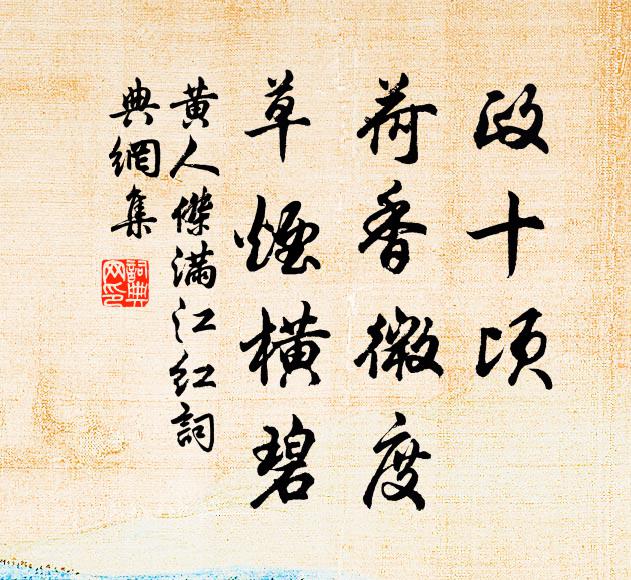 政十頃
荷香微度
草煙橫碧
黃人傑滿江紅詞
典網集
詞典網印